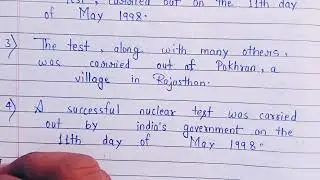 test, carried out on the 11th day
of May 1998.
3) The test, along with many others,
was carried out at Pokhran, a
village in Rajasthan.
4) A successful nuclear test was carried
out by india's government on the
11th day of May 1998.